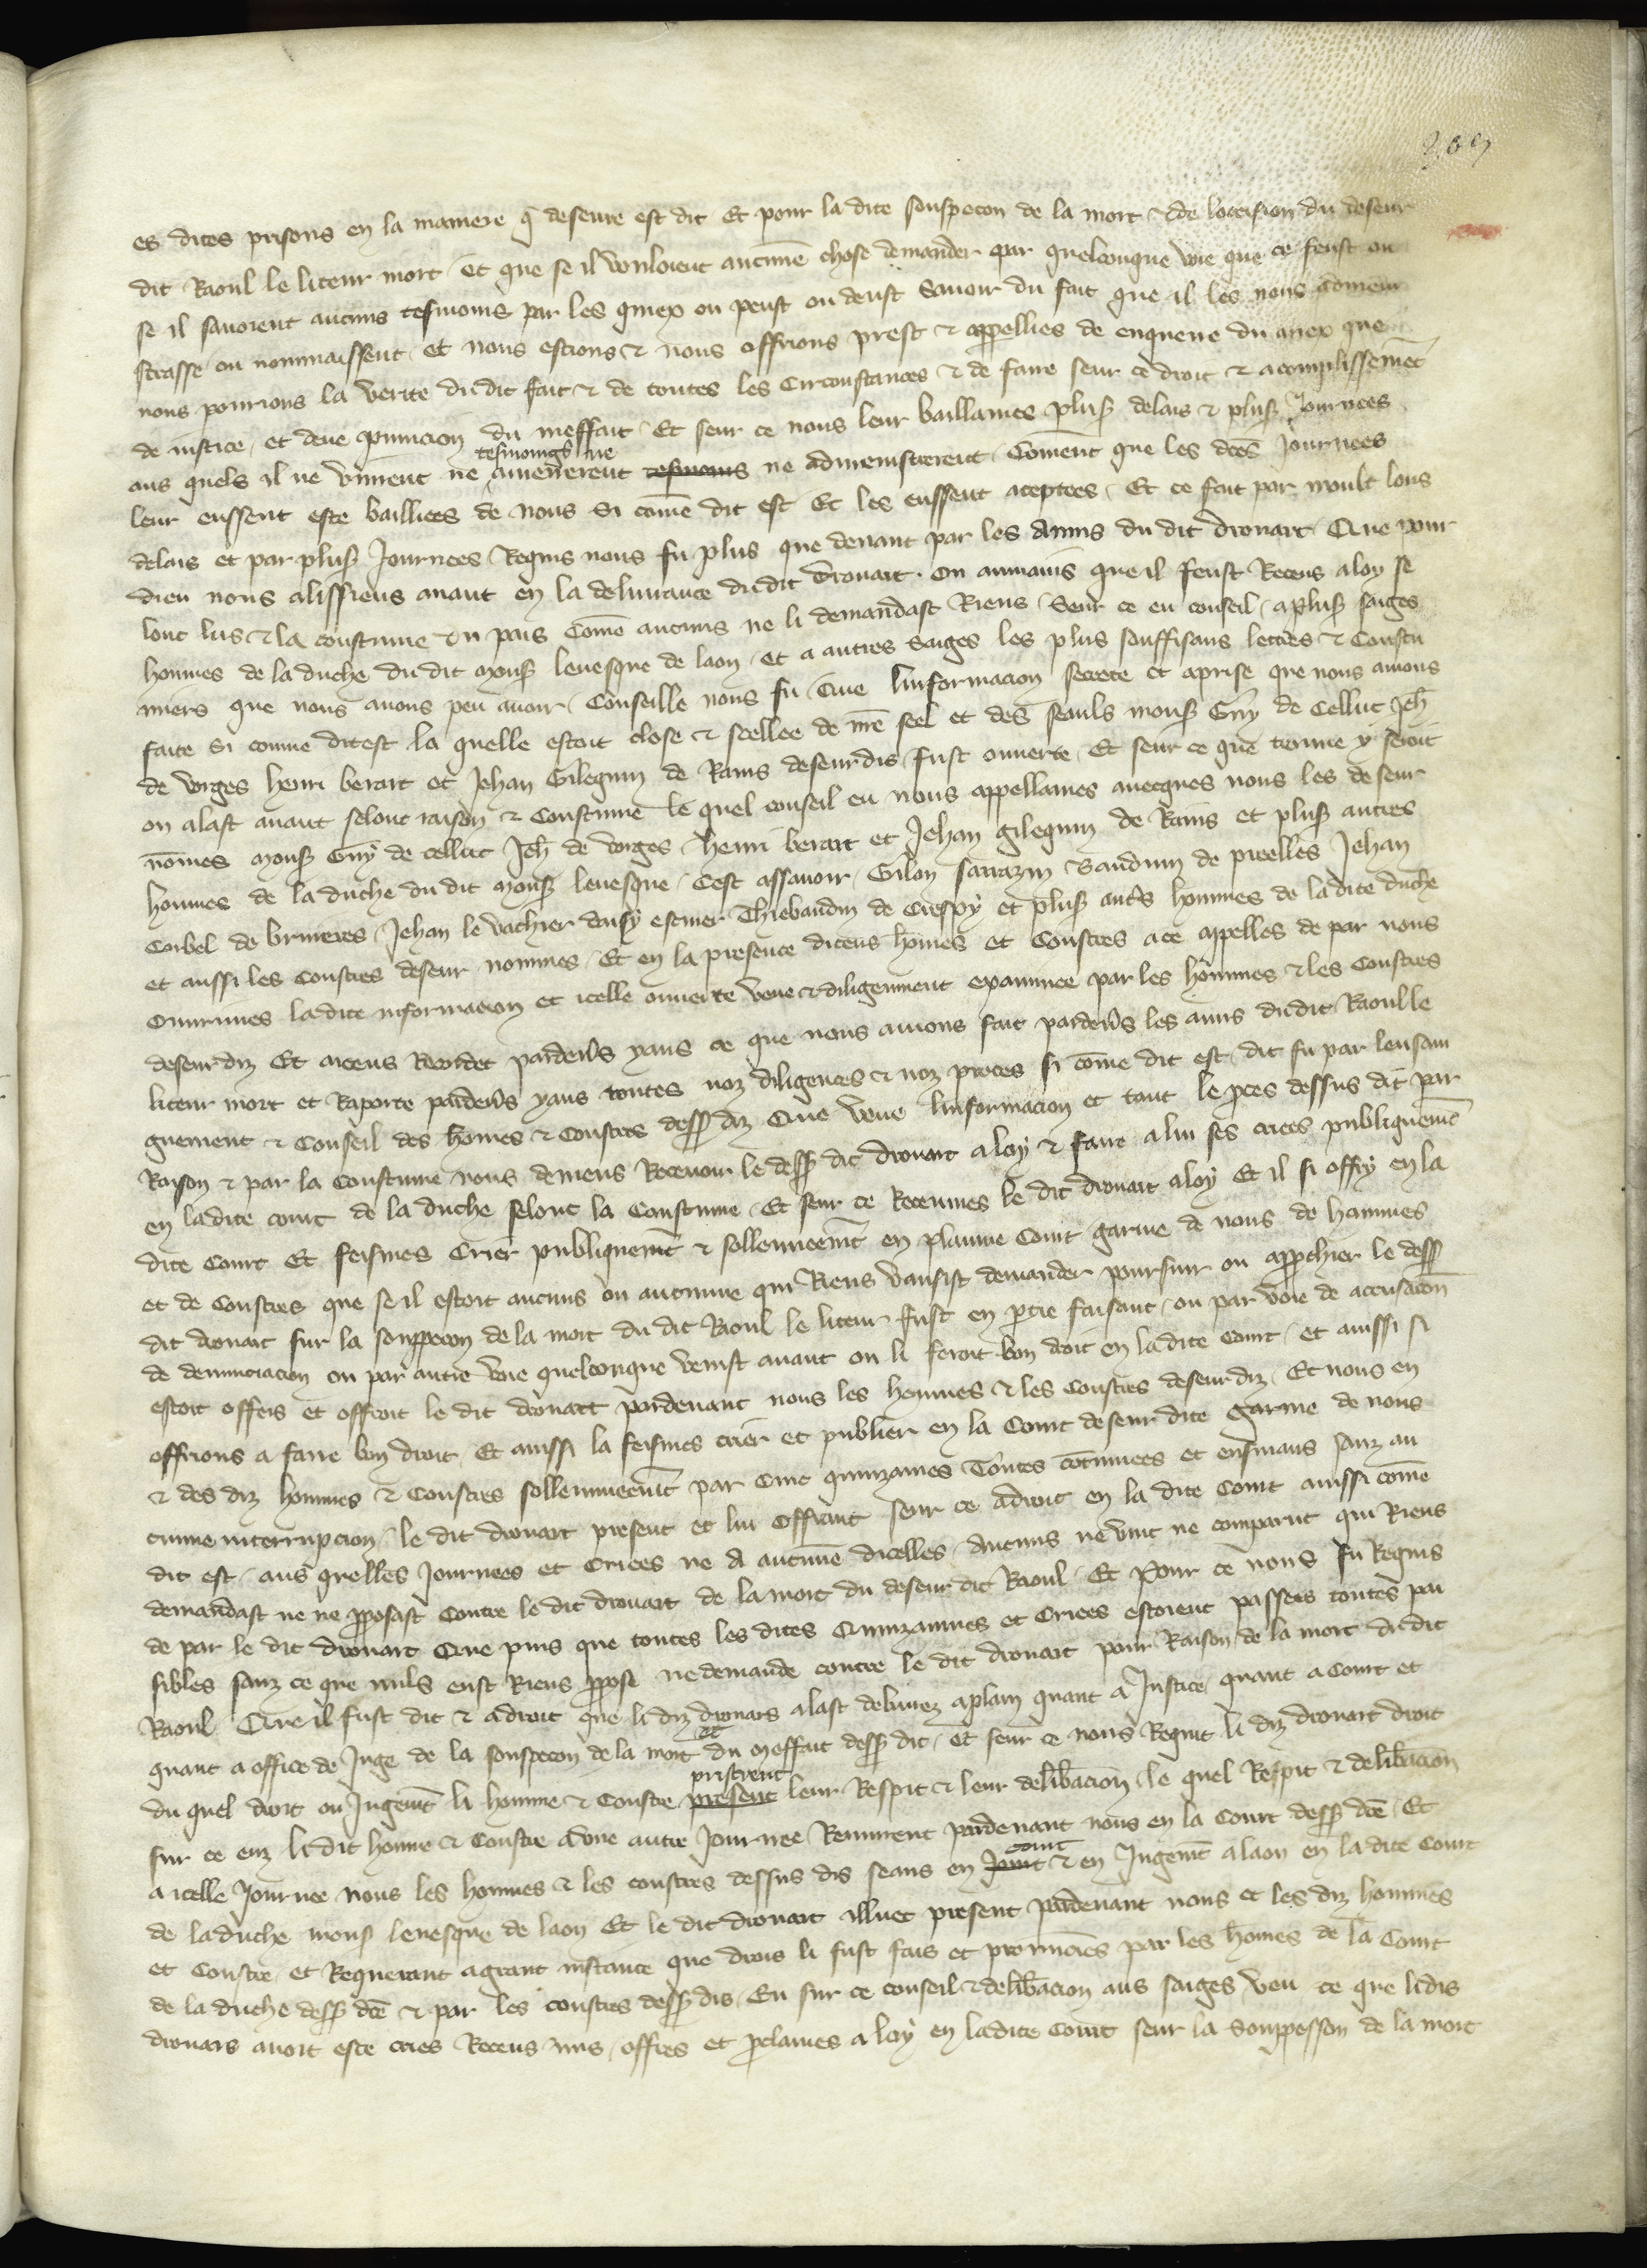 es dites prisons en la maniere q̄ deseure est dit Et pour la dite souspecon de la mort & de loccision du deseur
dit Raoul le liteur mort / et que se il vouloient aucune chose demander par quelconque voie que ce feust ou
se il savoient aucuns tesmoins par les quiex on peust ou deust savoir du fait que il les nous admeni
strasse ou nommaissent / et nous estions & nous offrions prest & appellies de enquerre du miex que
nous pourrions la verite du dit fait & de toutes les Circonstances & de faire seur ce droit & acomplissem̄t
de iustice / et deue punicion du meffait / Et seur ce nous leur baillames plus̉ delais & plus̉ Journees
aus quels il ne vinrent ne amenerent tesmoings ne ne admenistrerent / Com̄ent que les dc̄es Journees
leur eussent este bailliees de nous si com̄e dit est Et les eussent aceptees / Et ce fait par moult lons
delais et par plus̉ Journees Requis nous fu plus que devant par les Amis du dit drouart Que pour
dieu nous alissiens avant en la delivrance du dit drouart . Ou aumains que il feust Receus a loy se
lonc lus & la coustume du pais Com̄e aucuns ne li demandast Riens / Seur ce eu conseil / a plus̉ saiges
hommes de la duche du dit mons̉ levesque de laon / et a autres saiges les plus souffisans lectres & coustu
miers que nous avons peu avoir / Conseille nous fu / Que linformacion secrete et aprise que nous avions
faite si comme dit est la quelle estoit close & seellee de nr̄e seel et des seauls mons̉ Guy de Celluc Jeh̄
de vorges henri berart et Jehan Gilequin de Rains deseurdis / fust ouverte / Et seur ce que trouue y seroit
on alast avant selonc raison & Coustume le quel conseil eu nous appellames avecques nous les deseur
nōmes mons̉ Guy de celluc Jeh̄ de vorges / henri berart et Jehan gilequin de Rains et plus̉ autres
hommes de la duche du dit mons̉ levesque / Cest assavoir / Gilon sarrazin Baudouin de preelles Jehan
Corbel de bruieres / Jehan le vachier daisy escuier Thiebaudin de Crespy et plus̉ aut̉s hommes de la dite duche
et aussi les Coustres deseur nommes / Et en la presence diceus hōmes et Coustres a ce appelles de par nous
Ouvrimes ladite informacion et icelle ouverte veue & diligemment examinee par les hōmmes & les Coustres
deseurdiz Et aiceus Recordet pardev̄s yaus ce que nous avions fait pardev̄s les amis du dit Raoul le
liteur mort et Raporte pardev̄s yaus toutes noz diligences & noz proces si com̄e dit est / dit fu par lensain
gnement & Conseil des hōmes & Coustres dess̉ diz Que veue linformacion et tout le pces dessus dit par
Raison & par la Coustume nous deviens Recevoir le dess̉ dit drouart a loy & faire a lui ses criees publiquem̄t
en ladite court de la duche selonc la Coustume / Et seur ce Receumes le dit drouart a loy Et il si offry en la
dite Court Et feismes Crier publiquem̄t & sollenneem̄t en plainne Court garnie de nous de hommes
et de Coustres que se il estoit aucuns ou aucune qui Riens vausist demander poursuir ou approchier le dess̉
dit drouart sur la souppecon de la mort du dit Raoul le liteur fust en ptie faisant / ou par voie de accusacion
de denunciacion ou par autre voie quelconque venist avant on li feroit bon droit en ladite Court / et aussi si
estoit offers et offroit le dit drouart pardevant nous les hommes & les Coustres deseurdiz / Et nous en
offrions a faire bon droit / Et aussi la feismes crier et publier en la Court deseur dite garnie de nous
& des diz hommes & Coustres sollennueem̄t par Cinc quinzaines Toutes continuees et ensivans sanz au
cune interrupcion / le dit drouart present et lui Offrant seur ce a droit en la dite Court aussi com̄e
dit est / aus quelles Journees et Criees ne A aucune dicelles / Aucuns ne vint ne comparut qui Riens
demandast ne ne pposast Contre le dit drouart de la mort du deseur dit Raoul / Et Pour ce nous fu Requis
de par le dit drouart Que puis que toutes les dites Quinzainnes et Criees estoient passees toutes pai
sibles sanz ce que nuls eust Riens ppose ne demande contre le dit drouart pour Raison de la mort du dit
Raoul Que il fust dit & a droit que li diz drouars alast delivrez a plain quant a Justice / quant a Court et
quant a office de Juge de la souspecon de la mort et du meffait dess̉ dit / et seur ce nous Requist li diz drouart droit
du quel droit ou Jugem̄t li homme & Coustre present pristrent leur Respit & leur delib̄acion / le quel Respit & delib̄acion
sur ce euz li dit homme & Coustre a une autre Journee Revinrent pardevant nous en la Court dess̉ dc̄e / Et
a icelle Journee nous les hommes & les coustres dessus dis seans en Jouit court & en Jugem̄t a laon en ladite Court
de la duche mons̉ levesque de laon Et le dit drouart illuec present pardevant nous et les diz hommes
et Coustre / et Requerant a grant instance que drois li fust fais et prononcies par les hōmes de la Court
de la duche dess̉ dc̄e & par les coustres dess̉ dis / Eu sur ce conseil & delib̄acion aus saiges / veu ce que li dis
drouars avoit este cries Receus / mis / offres et pclames a loy en ladite Court seur la souppesson de la mort